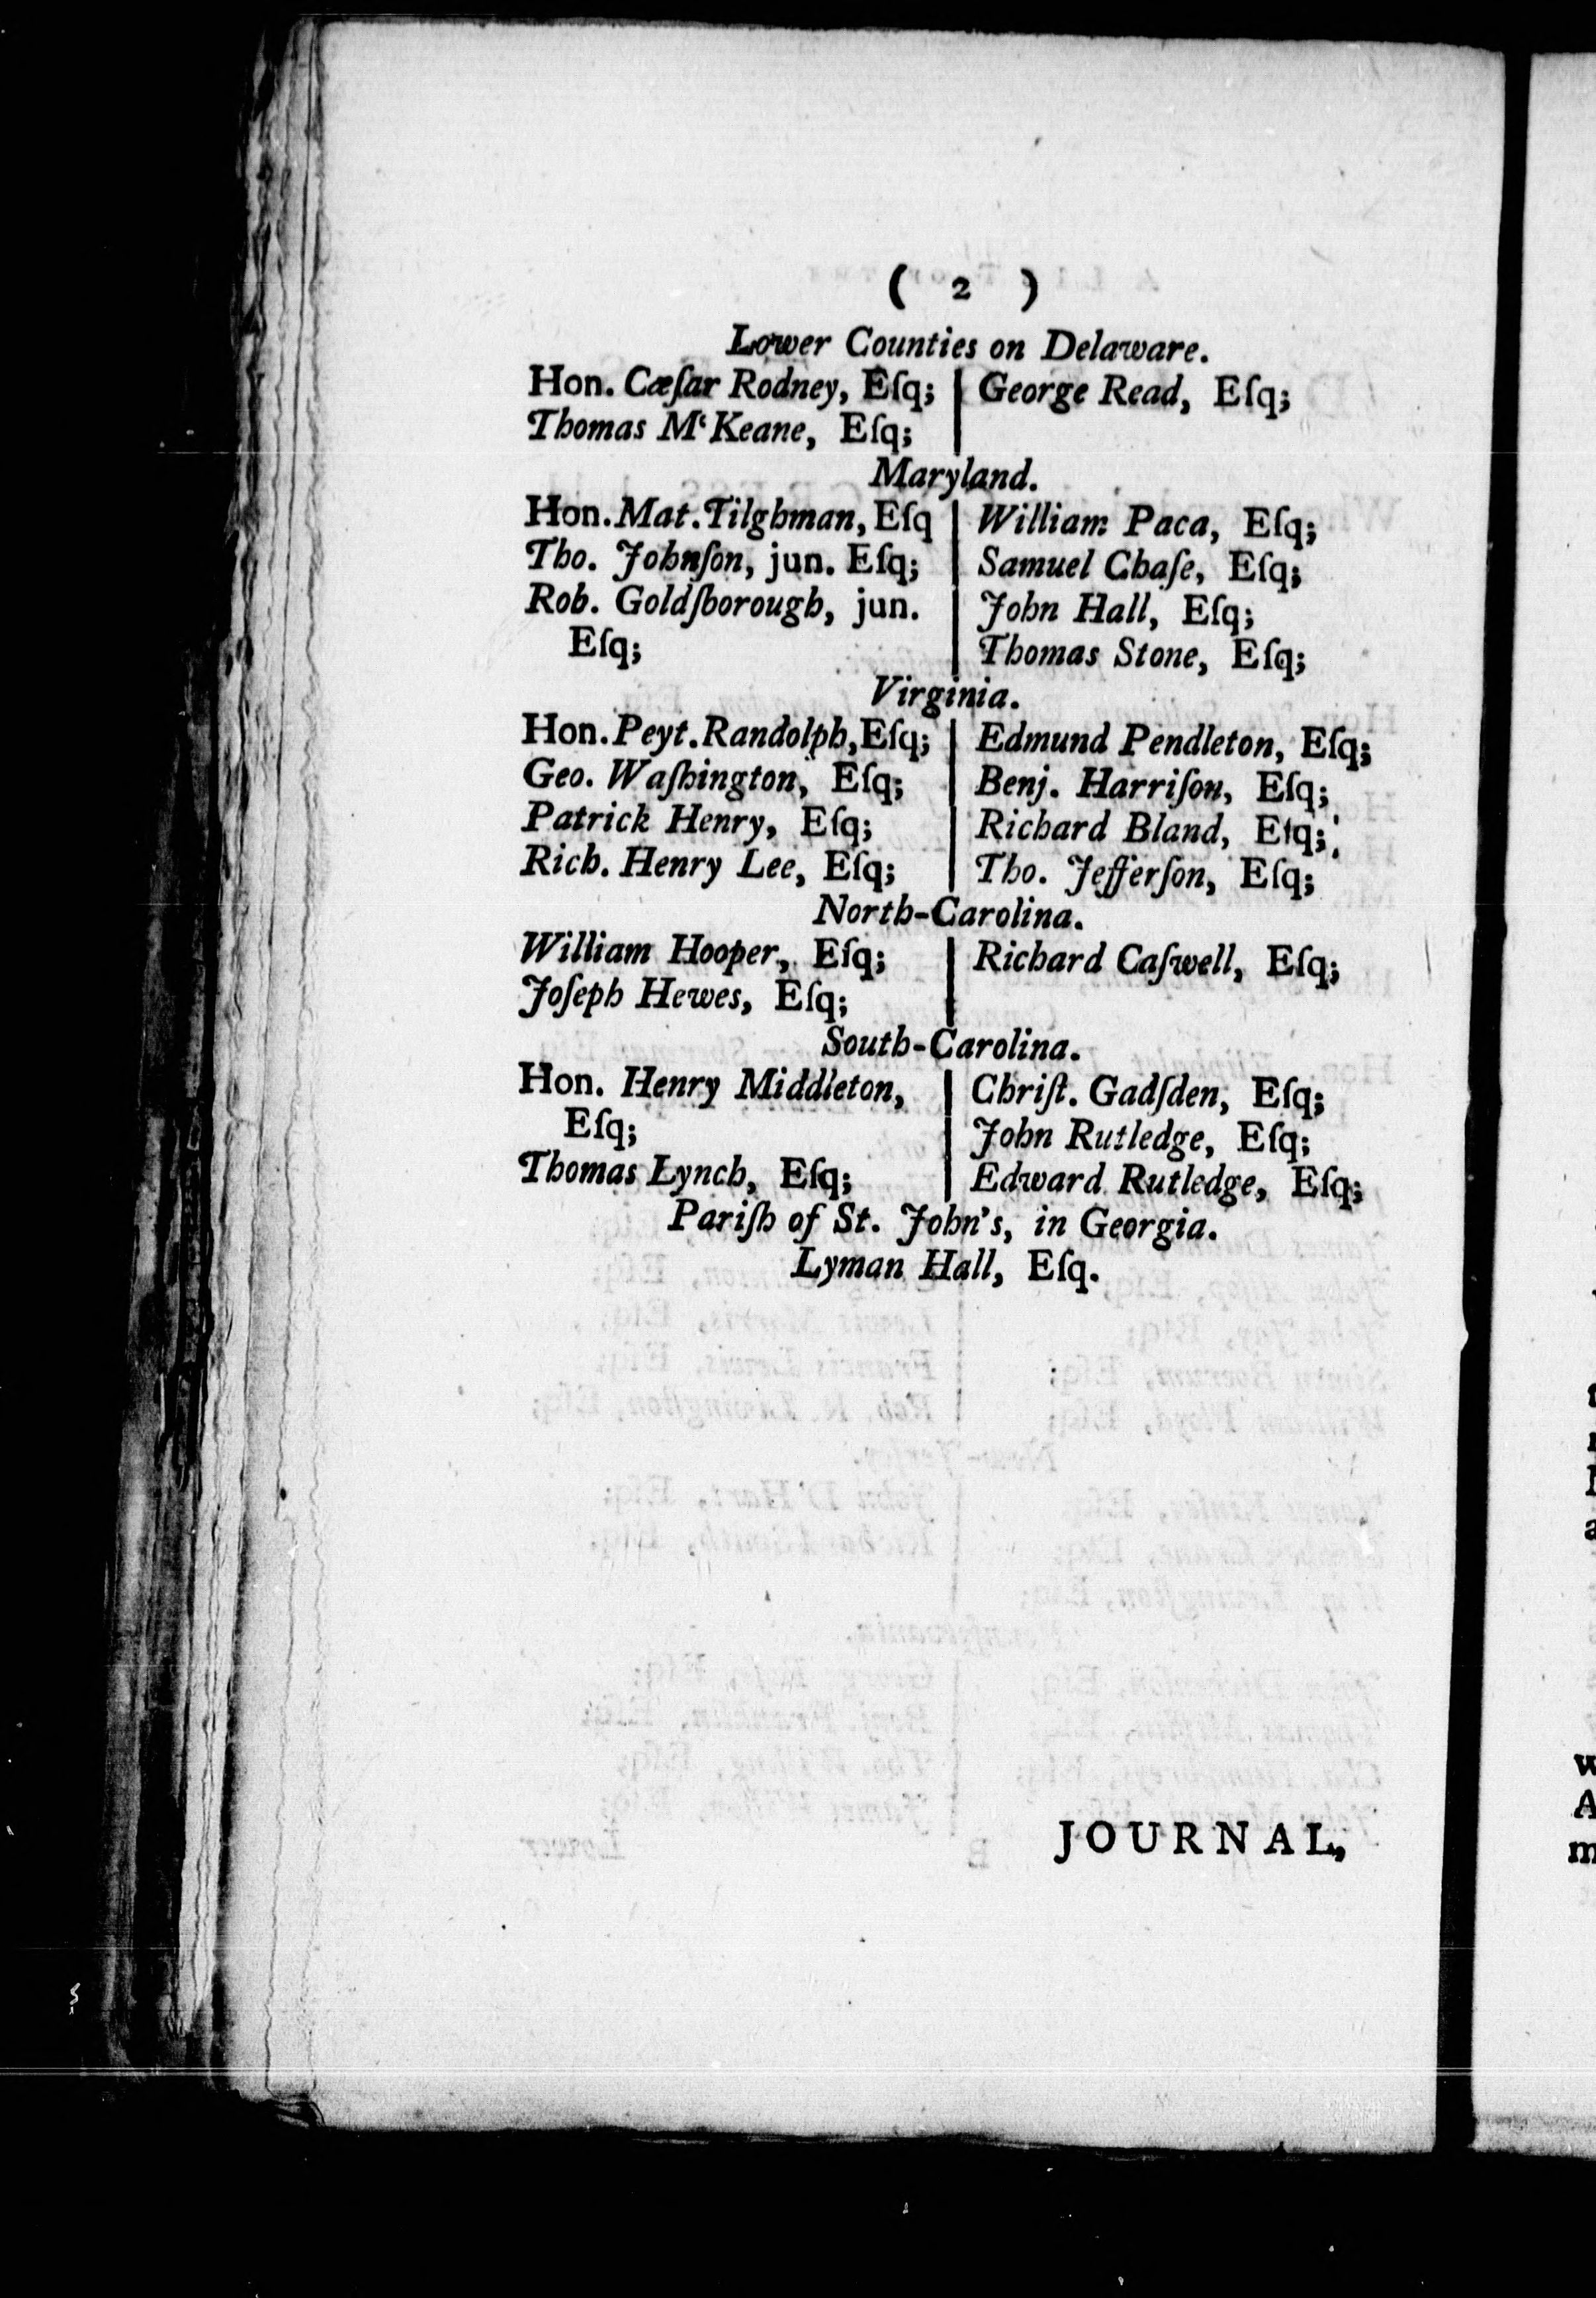 ( 2 )
Lower Counties on Delaware.
Hon. Cæſar Rodney, Eſq; | George Read, Eſq;
Thomas Mʿ Keane, Eſq; |
Maryland.
Hon. Mat. Tilghman, Eſq | William Paca, Eſq;
Tho. Johnſon, jun. Eſq; | Samuel Chaſe, Eſq;
Rob. Goldſborough, jun. | John Hall, Eſq;
Eſq; | Thomas Stone, Eſq;
Virginia.
Hon. Peyt. Randolph, Eſq; | Edmund Pendleton, Eſq;
Geo. Waſhington, Eſq; | Benj. Harriſon, Eſq;
Patrick Henry, Eſq; | Richard Bland, Eſq;
Rich. Henry Lee, Eſq; | Tho. Jefferſon, Eſq;
North-Carolina.
William Hooper, Eſq; | Richard Caſwell, Eſq;
Joſeph Hewes, Eſq; |
South-Carolina.
Hon. Henry Middleton, | Chriſt. Gadſden, Eſq;
Eſq; | John Rutledge, Eſq;
Thomas Lynch, Eſq; | Edward Rutledge, Eſq;
Pariſh of St. John's, in Georgia.
Lyman Hall, Eſq.
JOURNAL,